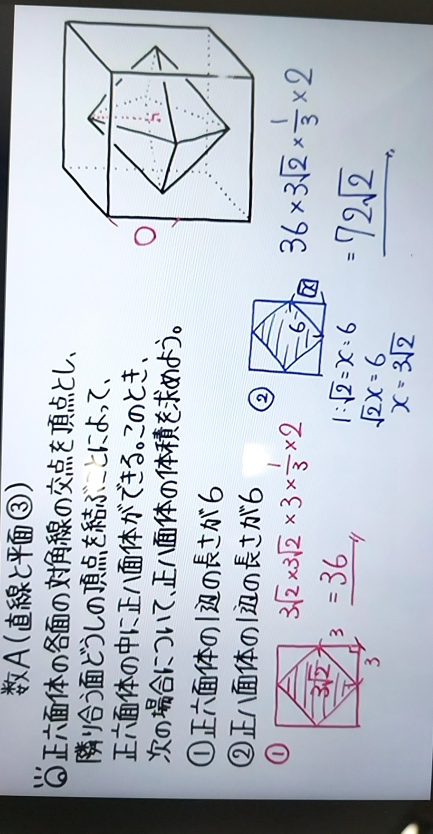 数A(直線と平面③)
⑥正六面体の各面の対角線の交点を頂点とし、
隣り合う面どうしの頂点を結ぶことによって、
正六面体の中に正八面体ができる。このとき、
次の場合について、正八面体の体積を求めよう。
①正六面体の1辺の長さが6
②正八面体の1辺の長さが6
①
3√2
3
3
3√2×3√2×3×1/3×2
=36
②
6
x
1:√2=x:6
√2x=6
x=3√2
36×3√2×1/3×2
=72√2